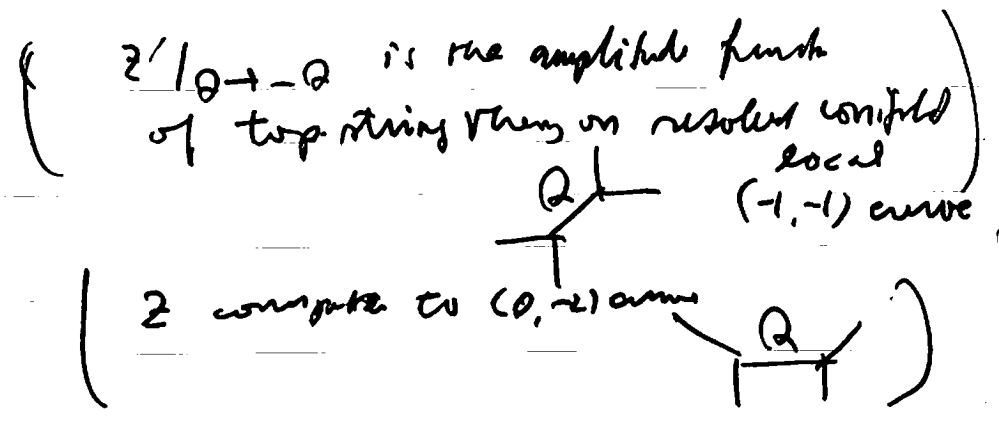 ( Z'|Q→-Q is the amplitude funct
of top string theory on resolved conifold )
local
(-1,-1) curve
Q
( Z computes to (0,-2) curve
Q )